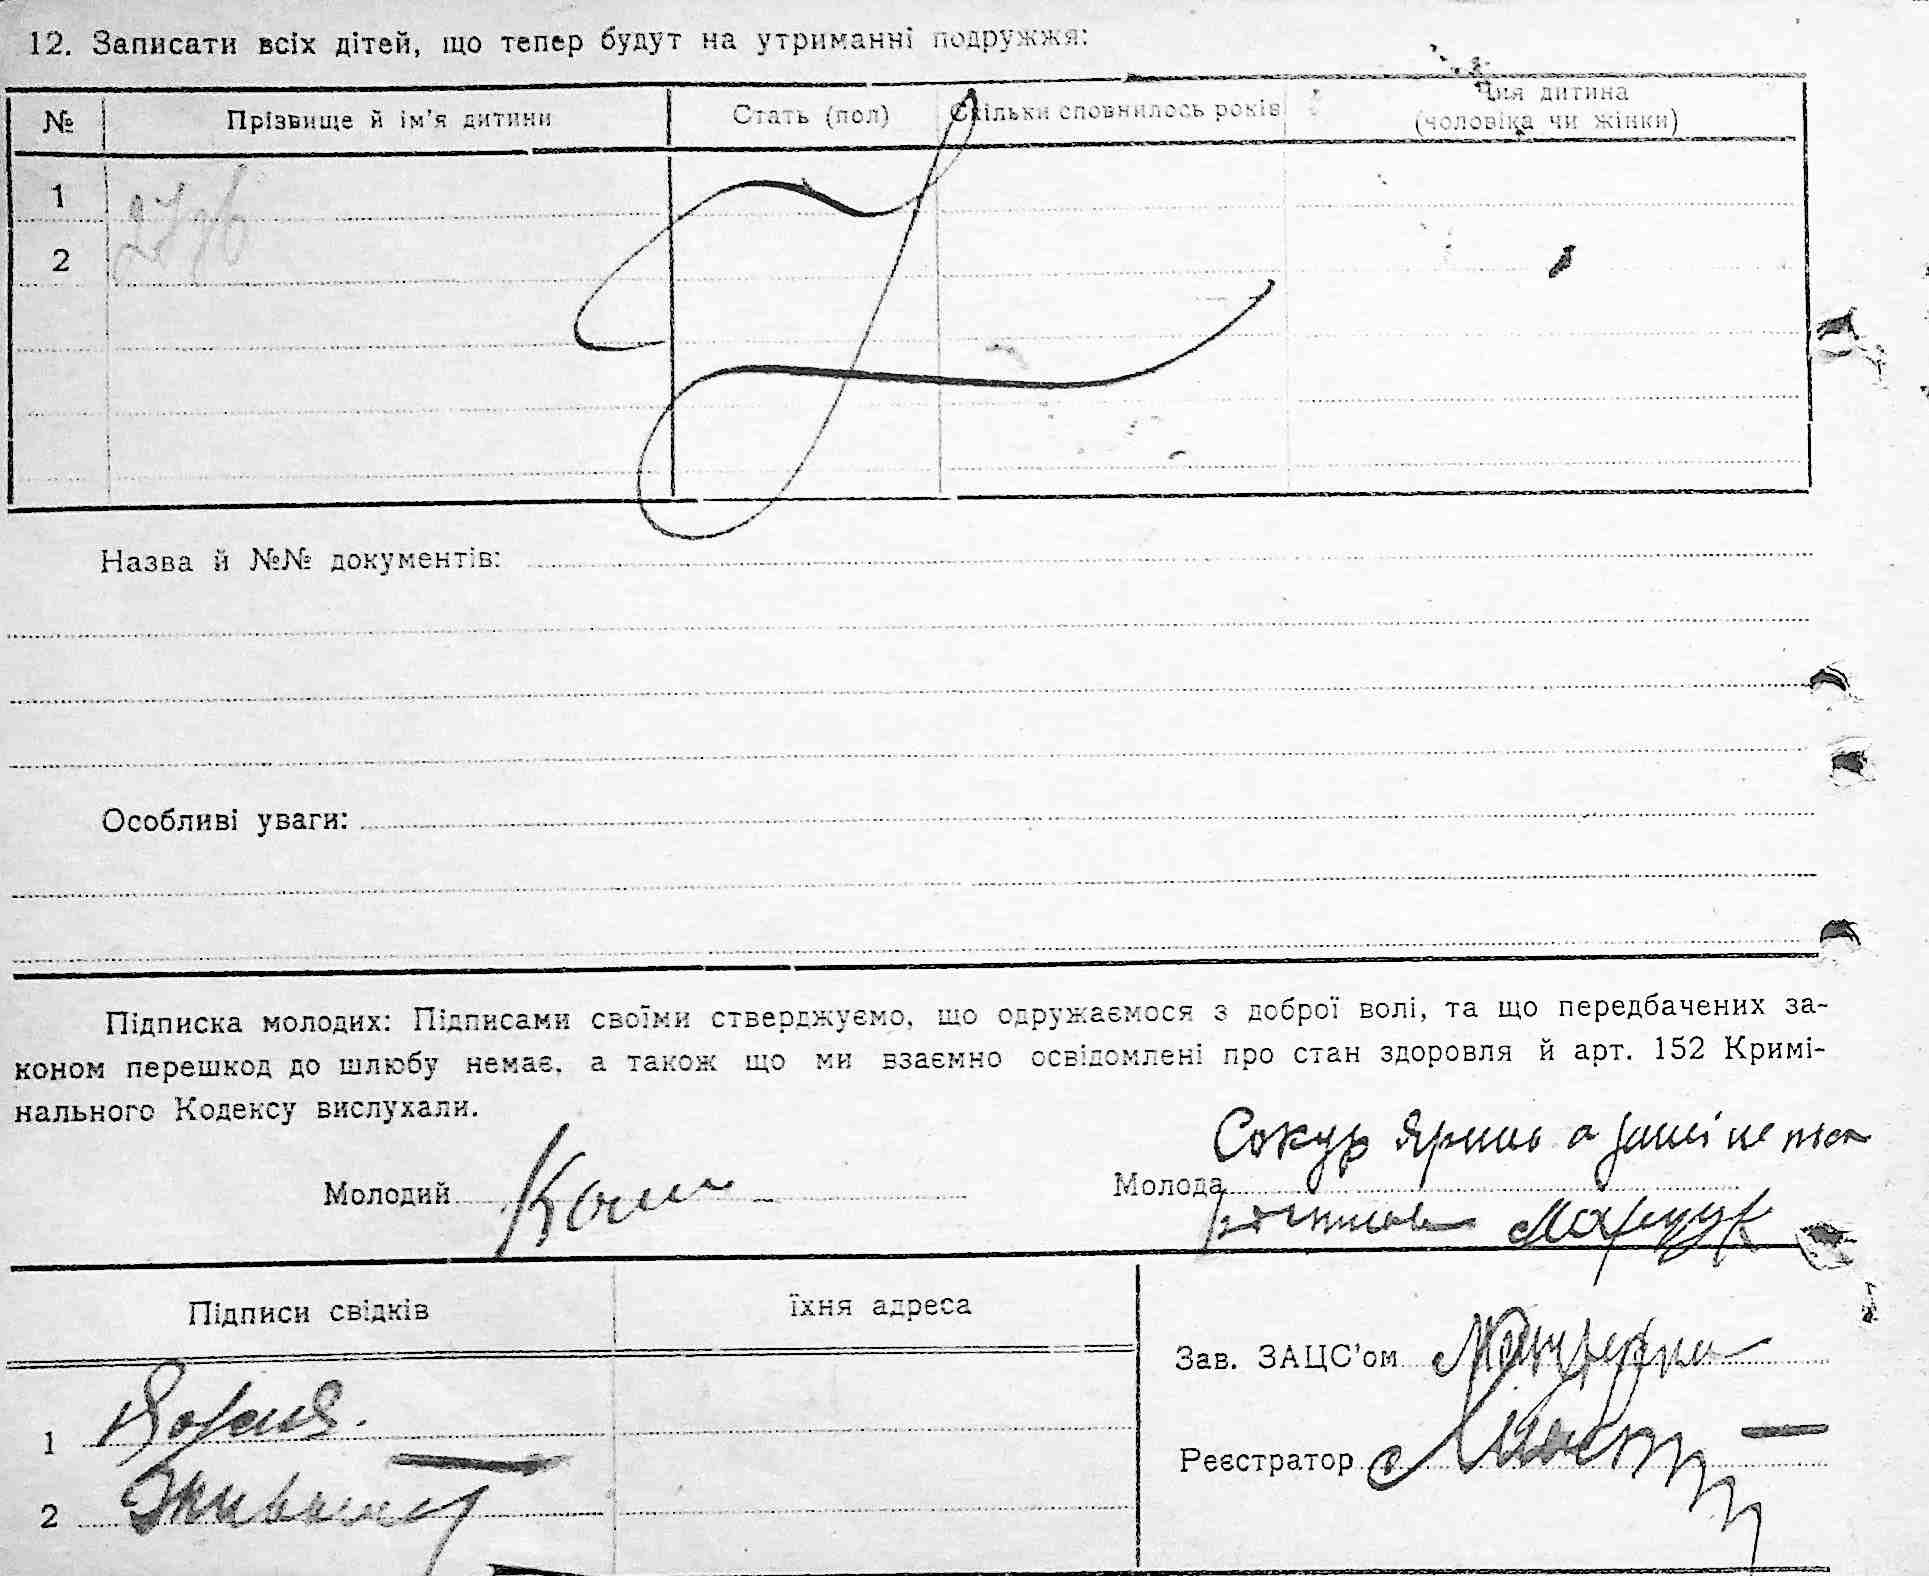 12. Записати всіх дітей, що тепер будут на утриманні подружжя:
№ Прізвище й ім'я дитини Стать (пол) Скільки сповнилось років Чия дитина
(чоловіка чи жінки)
1
2
Назва й №№ документів:
Особливі уваги:
Підписка молодих: Підписами своїми стверджуємо, що одружаємося з доброї волі, та що передбачених за-
коном перешкод до шлюбу немає, а також що ми взаємно освідомлені про стан здоровля й арт. 152 Кримі-
нального Кодексу вислухали.
Сокур Ярина а за неї не
Молодий Молода
Марчук
Підписи свідків їхня адреса
Зав. ЗАЦС'ом
1
Реєстратор
2